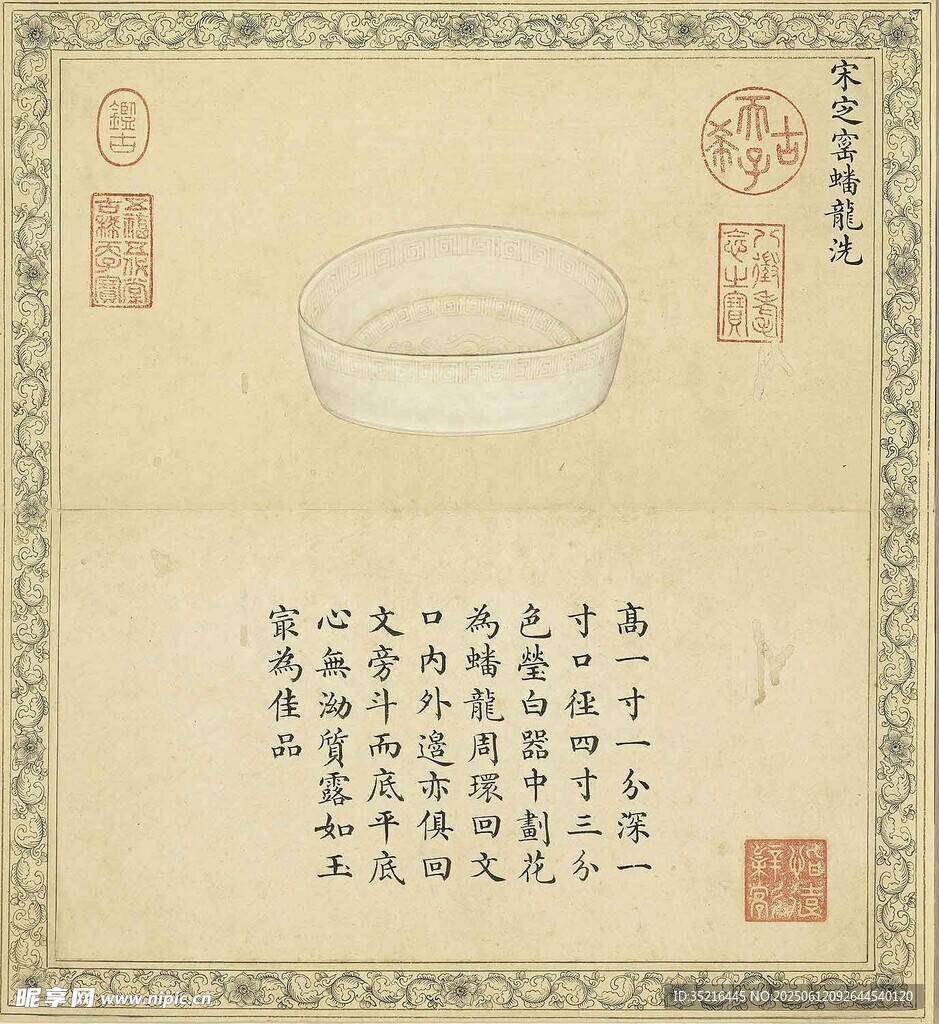 宋㝎窰蟠龍洗
古希天子
八徵耄念之寶
鑑古
五福五代堂古稀天子寶
髙一寸一分深一
寸口徑四寸三分
色瑩白器中劃花
為蟠龍周環回文
口内外邊亦俱回
文旁斗而底平底
心無泑質露如玉
㝡為佳品
昵享网 www.nipic.cn
ID:35216445 NO:20250612092644540120